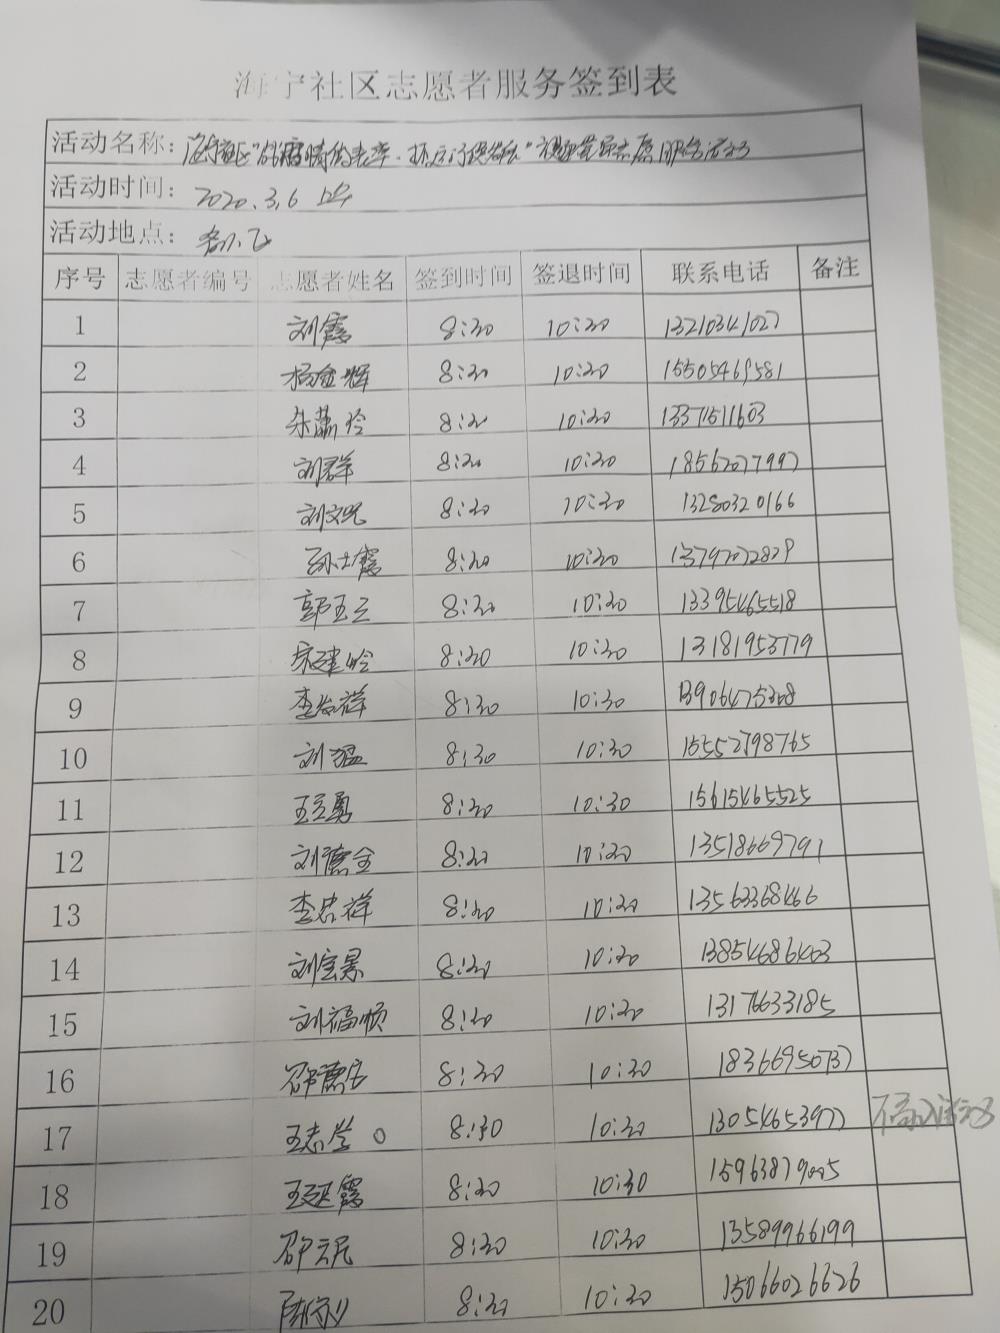 海宁社区志愿者服务签到表
活动名称：
活动时间： 2020.3.6 上午
活动地点：
序号 志愿者编号 志愿者姓名 签到时间 签退时间 联系电话 备注
1 刘霞 8:30 10:30 13210341027
2 杨金辉 8:30 10:30 15505469581
3 朱萧玲 8:30 10:30 13371511603
4 刘群 8:30 10:30 18562077997
5 8:30 10:30 13280320166
6 孙士霞 8:30 10:30 13797072829
7 郭玉兰 8:30 10:30 13395465518
8 宋建岭 8:30 10:30 13181953779
9 8:30 10:30 13906475308
10 刘猛 8:30 10:30 15552798765
11 王立勇 8:30 10:30 15615465525
12 刘德全 8:30 10:30 13518669791
13 李忠祥 8:30 10:30 13563368466
14 刘宝景 8:30 10:30 13854686403
15 刘福顺 8:30 10:30 13176633185
16 8:30 10:30 18366950737
17 8:30 10:30 13054653977
18 王延霞 8:30 10:30 15963879005
19 邵云民 8:30 10:30 13589966199
20 8:30 10:30 15066026626